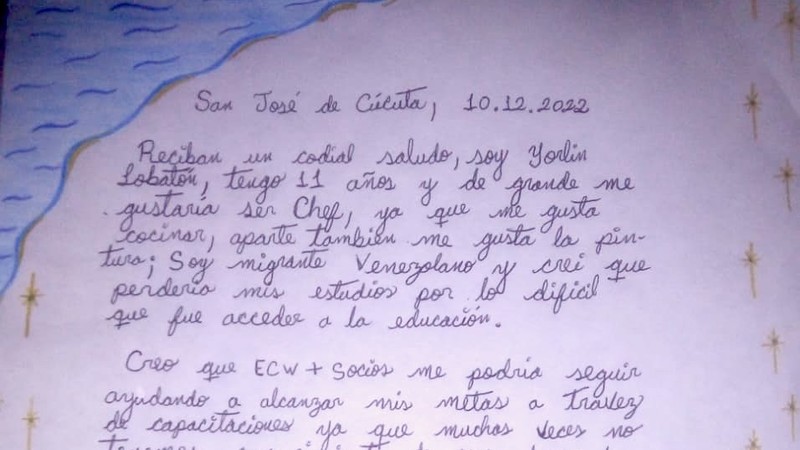 San José de Cúcuta, 10.12.2022
Reciban un codial saludo, soy Yorlin
Lobatón, tengo 11 años y de grande me
gustaría ser Chef, ya que me gusta
cocinar, aparte también me gusta la pin-
tura; Soy migrante Venezolano y crei que
perdería mis estudios por lo dificil
que fue acceder a la educación.
Creo que ECW + Socios me podría seguir
ayudando a alcanzar mis metas a travez
de capacitaciones ya que muchas veces no